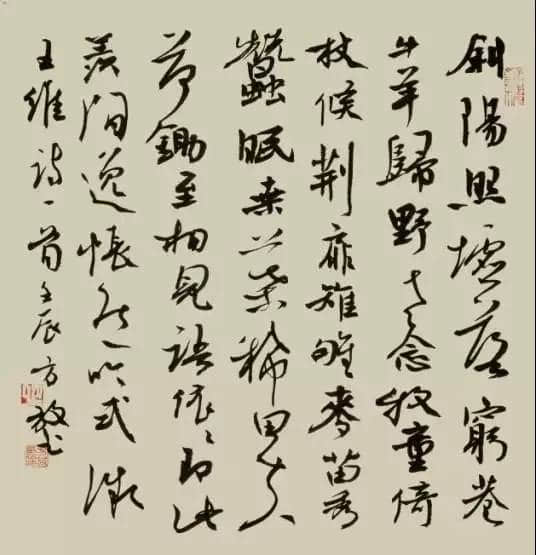 斜陽照墟落窮巷
牛羊歸野老念牧童倚
杖候荊扉雉雊麥苗秀
蠶眠桑葉稀田夫
荷鋤至相見語依〻即此
羨閒逸悵然吟式微
王維詩一首壬辰方